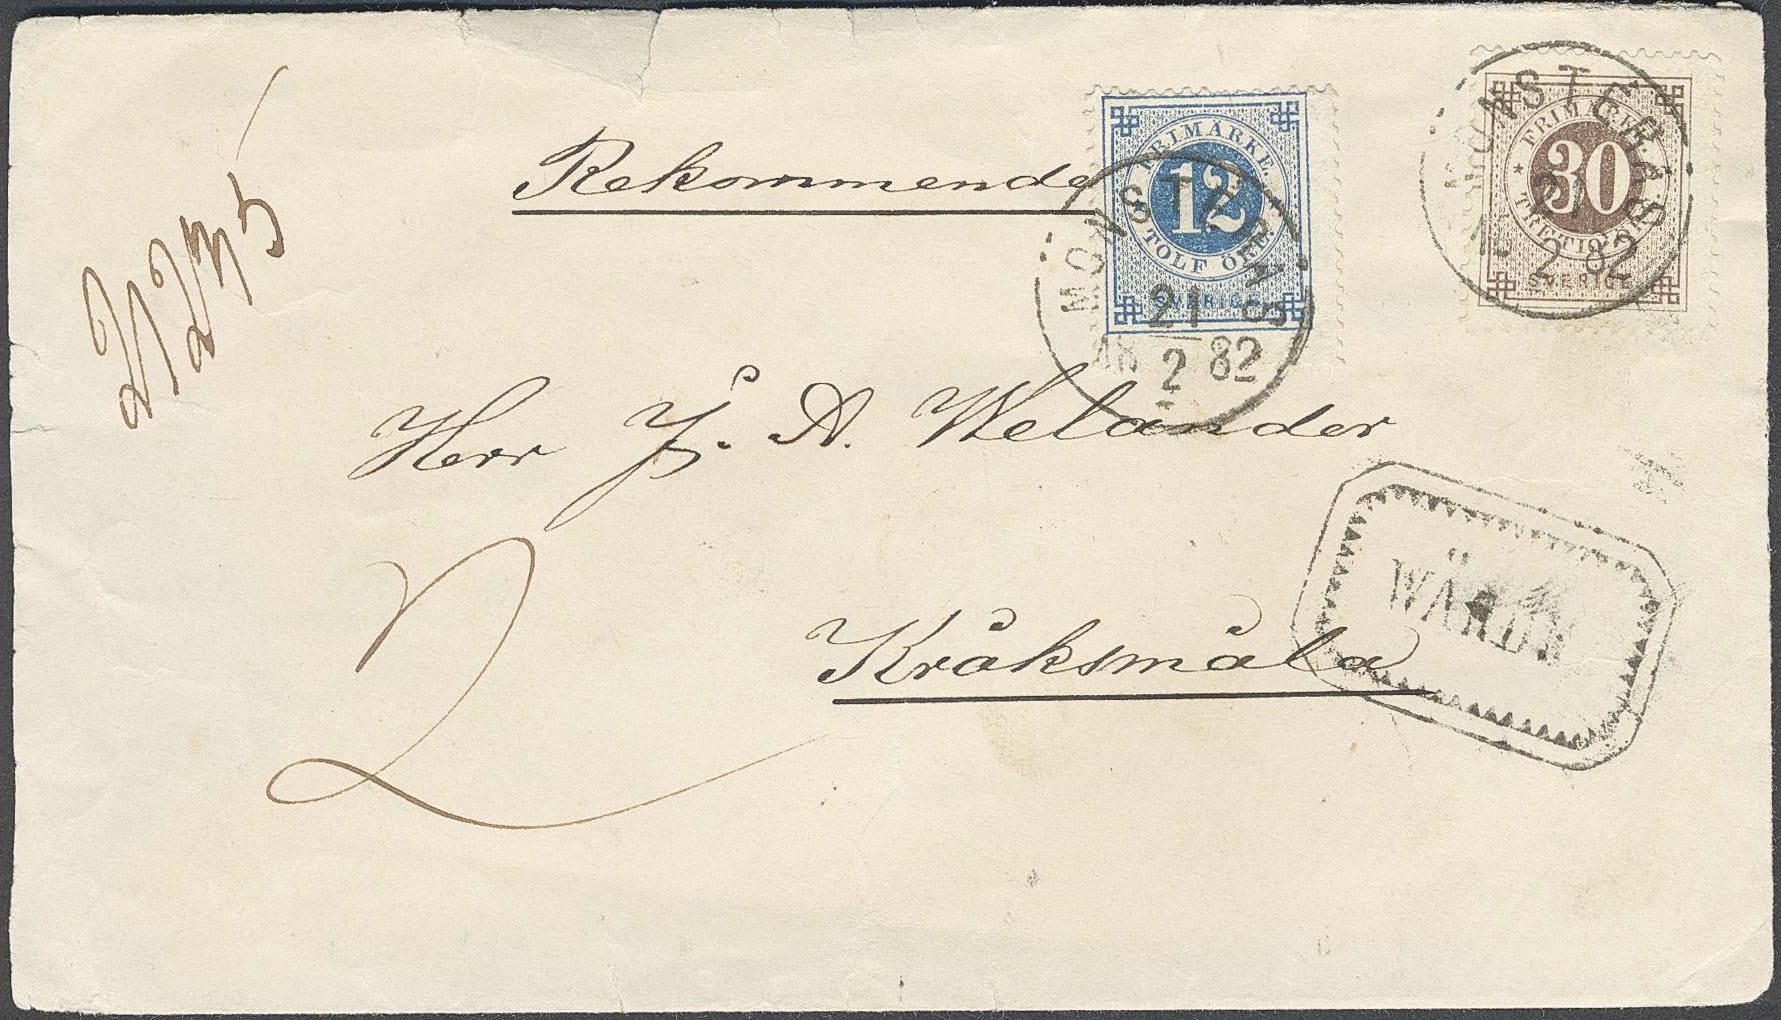 Rekommende
FRIMÄRKE.
12
TOLF ÖRE.
SVERIGE
MÖNSTERÅS
21
18 2 82
FRIMÄRKE
30
TRETIO ÖRE
SVERIGE
MÖNSTERÅS
21
18 2 82
Herr J. A. Welander
2
Kråksmåla
WÄRDE